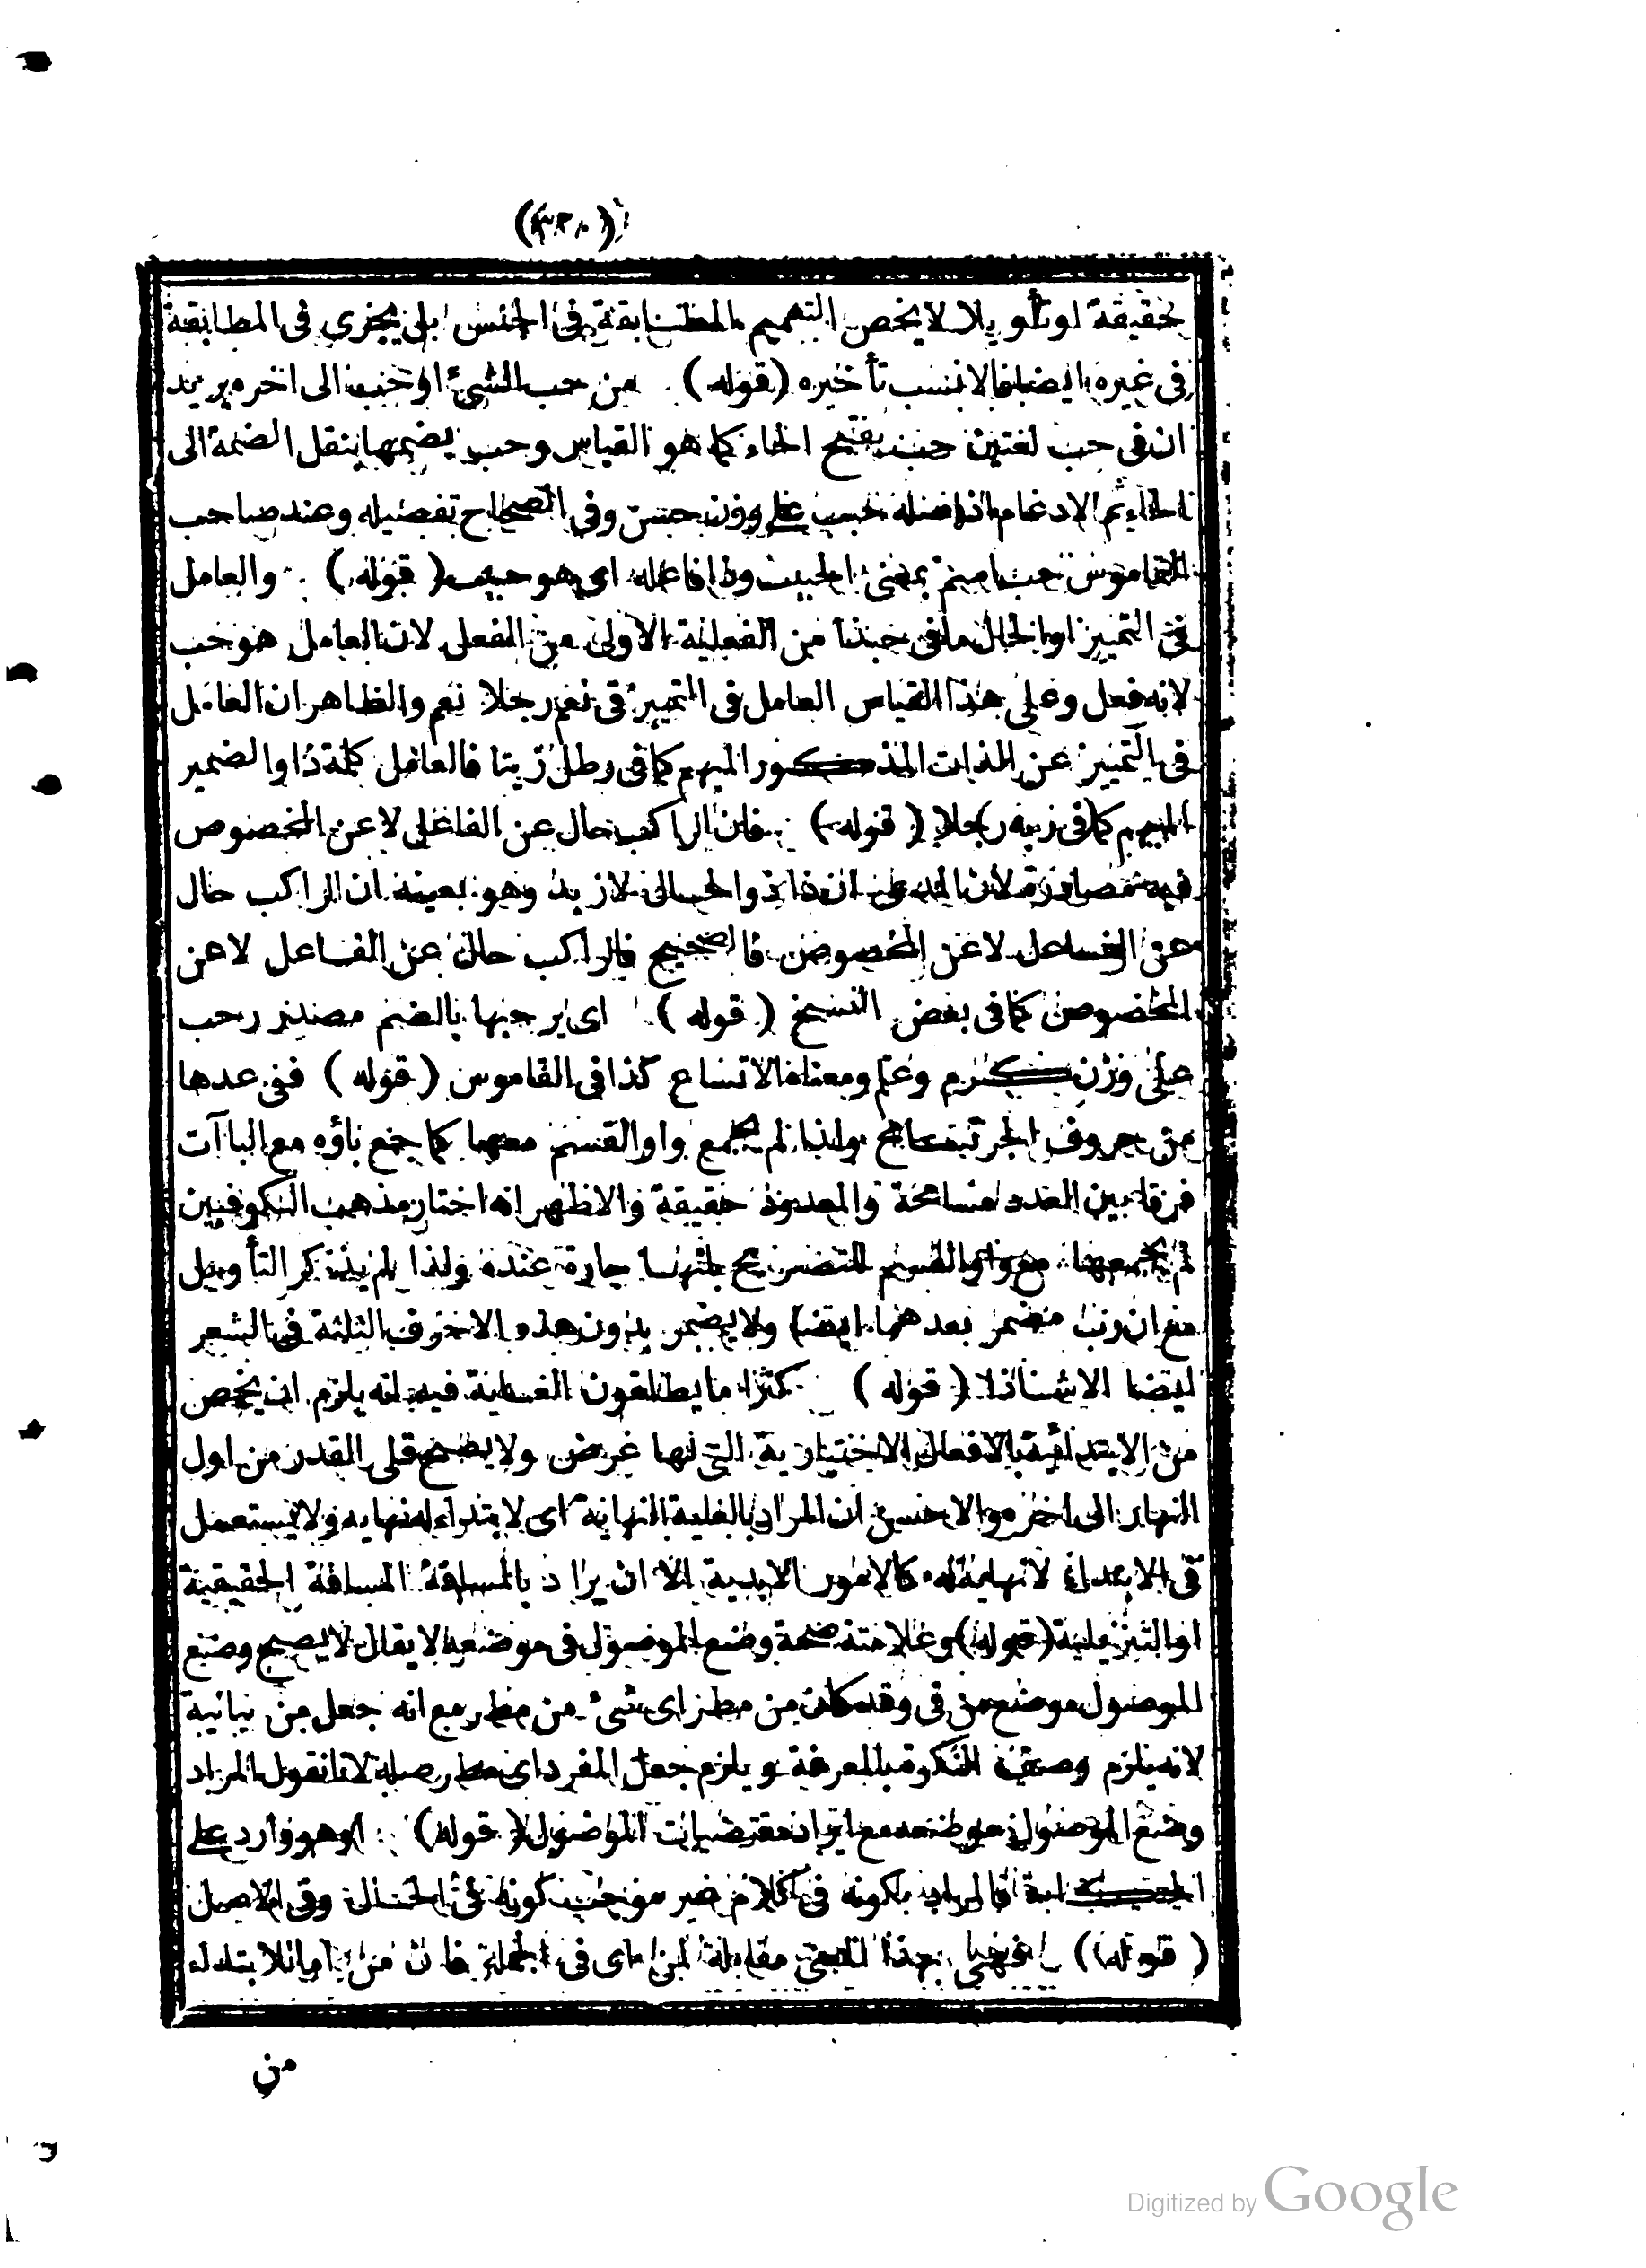 (٣٢٠)
حقيقة اوتأويلا لا يخص التعميم المطابقة فى الجنس بل يجرى فى المطابقة
فى غيره ايضا فالانسب تأخيره (قوله) من حب الشئ اوحبب الى اخره يريد
ان فى حب لغتين حب بفتح الحاء كما هو القياس وحب بضمها بنقل الضمة الى
الحاء ثم الادغام اذ اصله حبب على وزن حسن وفى الصحاح تفصيله وعند صاحب
القاموس حب اسم بمعنى الحبيب وذا فاعله اى هو حبيب (قوله) والعامل
فى التمييز او الحال ما فى حبذا من الفعلية الاولى من الفعل لان العامل هو حب
لانه فعل وعلى هذا القياس العامل فى التمييز فى نعم رجلا نعم والظاهر ان العامل
فى التمييز عن الذات المذكور المبهم كما فى رطل زيتا فالعامل كلمة ذا او الضمير
المبهم كما فى ربه رجلا (قوله) فان الراكب حال عن الفاعل لا عن المخصوص
فيه مصادرة لان المدعى ان ذا ذو الحال لا زيد وهو بعينه ان الراكب حال
عن الفاعل لا عن المخصوص فالصحيح فالراكب حال عن الفاعل لا عن
المخصوص كما فى بعض النسخ (قوله) اى برحبها بالضم مصدر رحب
على وزن كرم وعلم ومعناه الاتساع كذا فى القاموس (قوله) ففى عدها
من حروف الجر تسامح ولذا لم يجمع واو القسم معها كما جمع باؤه مع الباآت
فرقا بين العدد مسامحة والمعدود حقيقة والاظهر انه اختار مذهب الكوفيين
لم يجمعها مع واو القسم للتصريح بانها جارة عنده ولذا لم يذكر التأويل
مع ان رب مضمر بعدهما ايضا ولا يضمر بدون هذه الاحرف الثلثة فى الشعر
ايضا الا شاذا (قوله) كثيرا ما يطلقون الغاية فيه انه يلزم ان يخص
من الابتدائية بالافعال الاختيارية التى لها غرض ولا يصح قلى القدر من اول
النهار الى اخره والاحسن ان المراد بالغاية النهاية اى لابتداء له نهاية ولا يستعمل
فى الابتداء لا نهاية له كالامور الابدية الا ان يراد بالمسافة المسافة الحقيقية
او التنزيلية (قوله) وعلامته صحة وضع الموصول فى موضعه لا يقال لا يصح وضع
الموصول موضع من فى وقد كان من مطر اى شئ من مطر مع انه جعل من بيانية
لانه يلزم وصف النكرة بالمعرفة ويلزم جعل المفرد اى مطر صلة لانا نقول المراد
وضع الموصول موضعه مع ايراد مقتضيات الموصول (قوله) او هو وارد على
الحكاية فالمراد بكونه فى كلام غير موجب كونه فى الحال وفى الاصل
(قوله) فهى بهذا المعنى مقابلة لمن اى فى الجملة فان من اما للابتداء
من
Digitized by Google